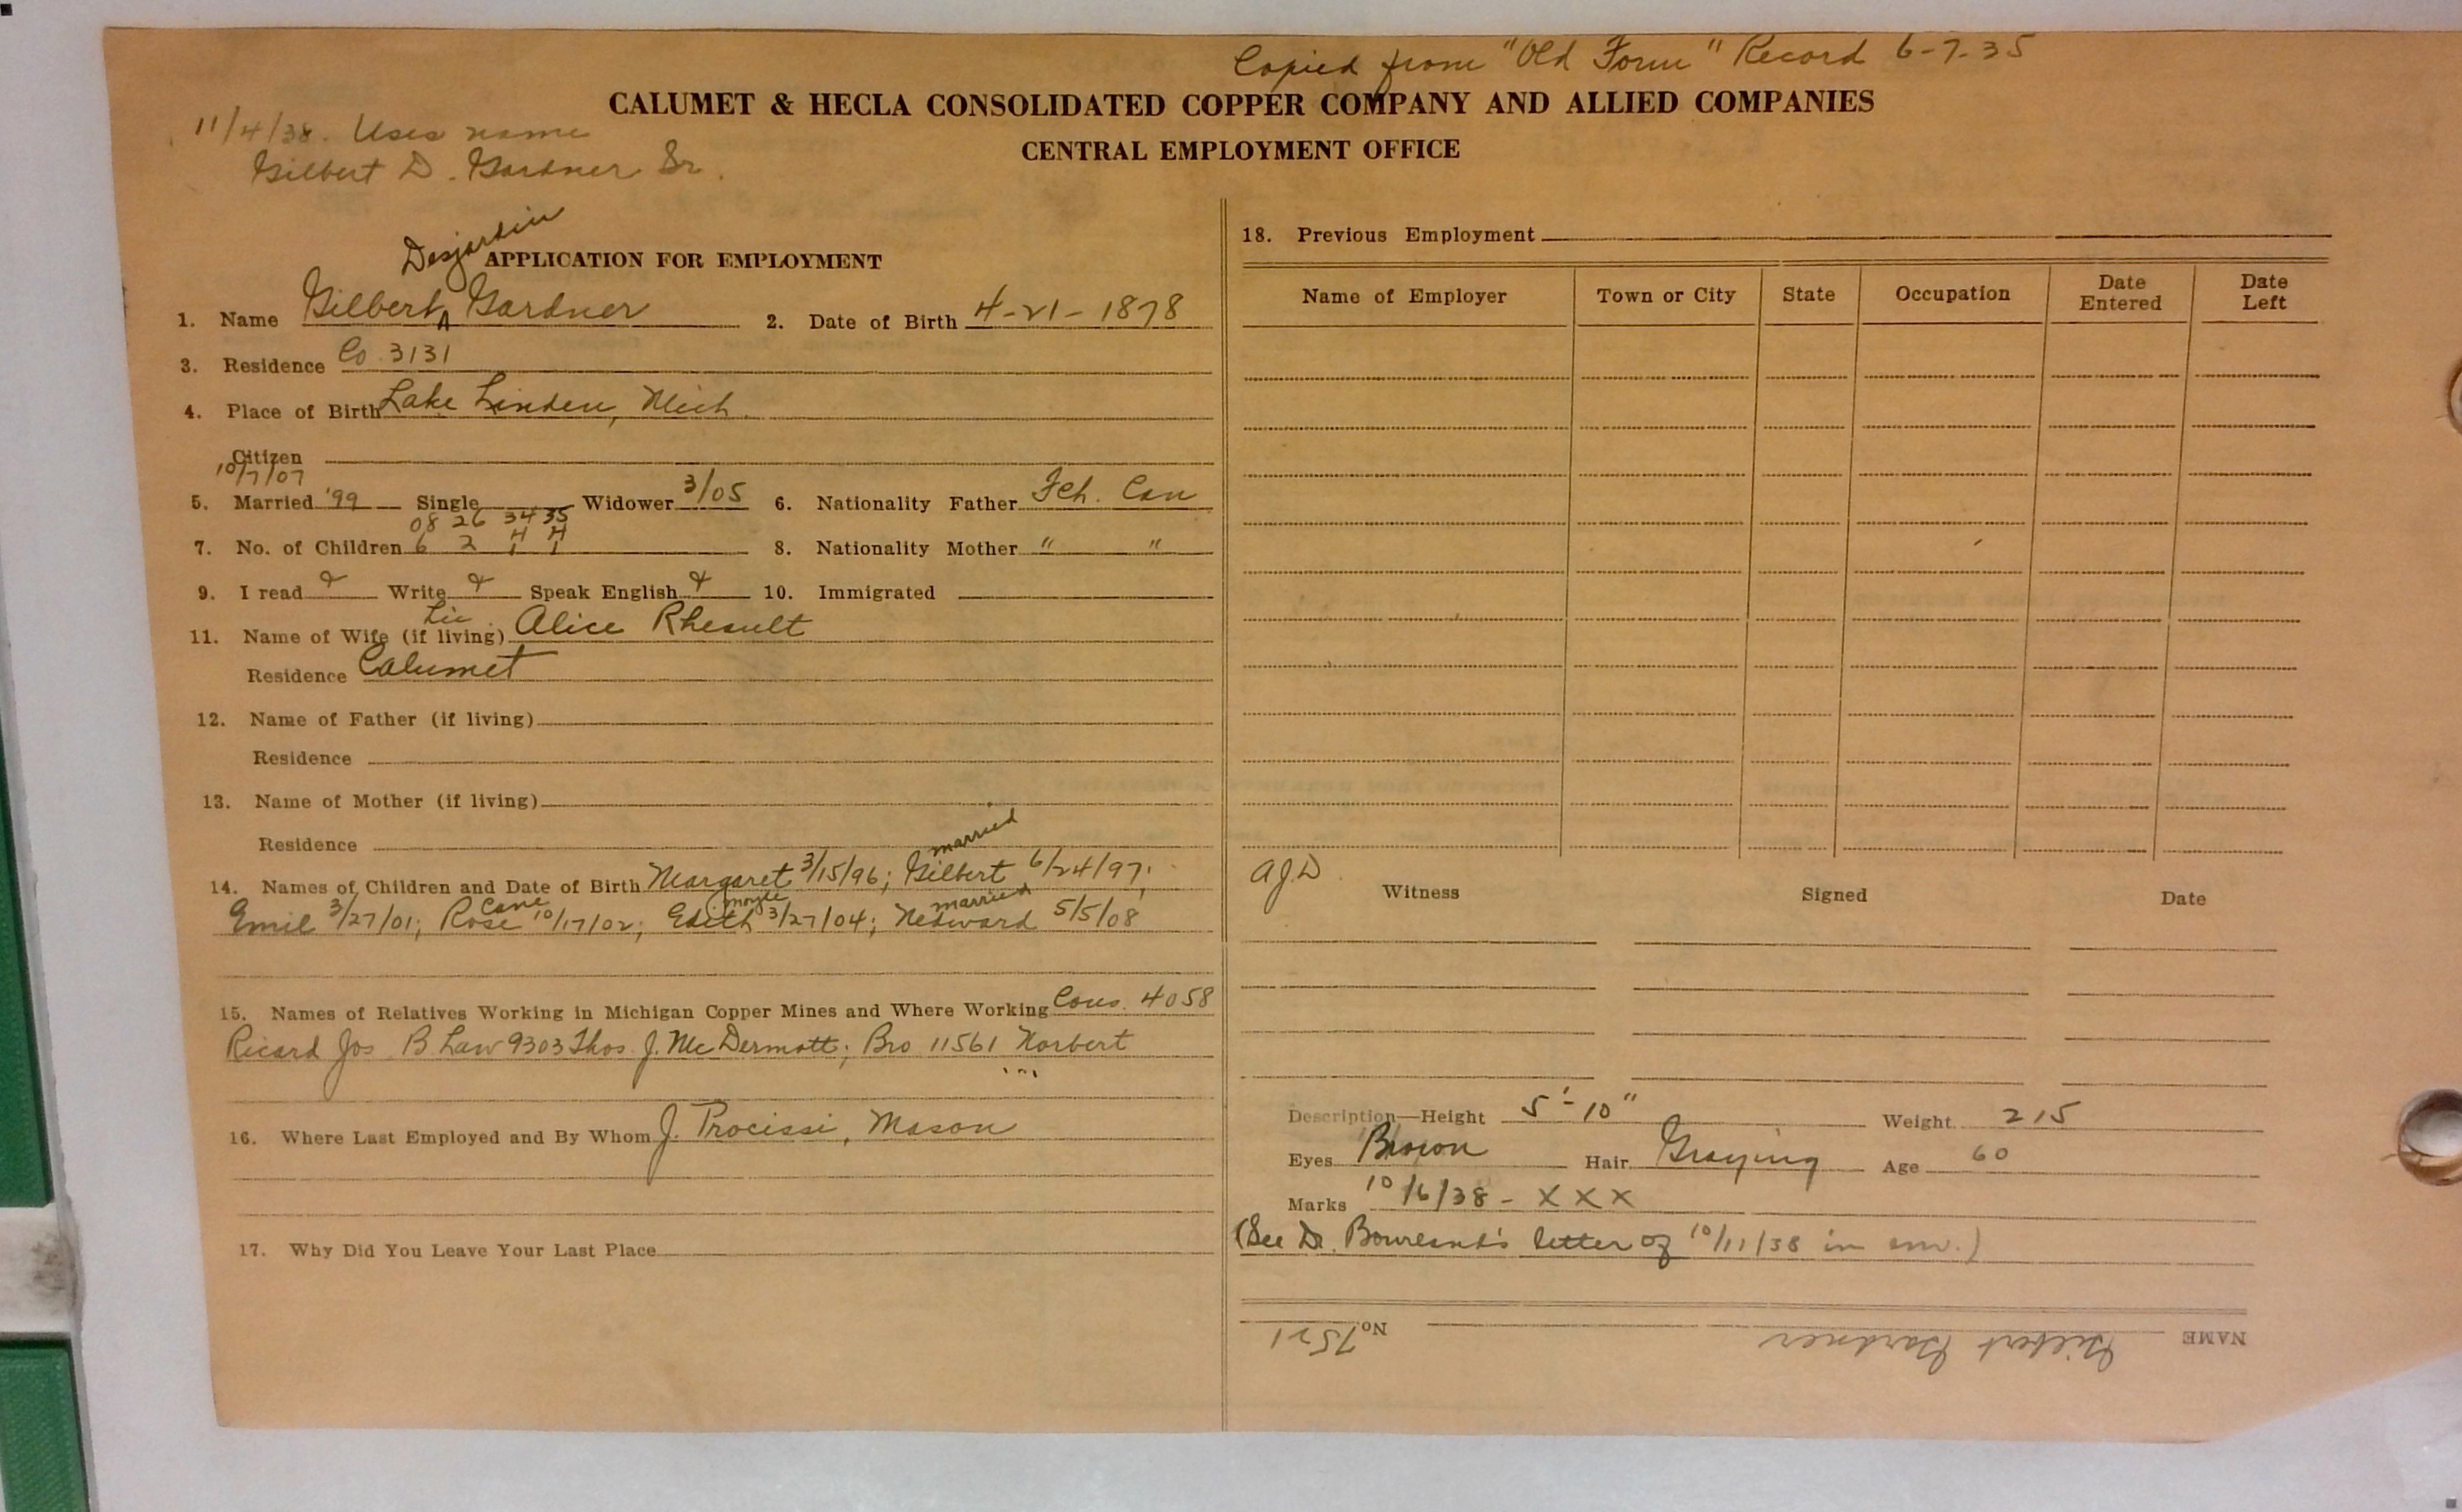 Copied from "Old Form" Record 6-7-35
CALUMET & HECLA CONSOLIDATED COPPER COMPANY AND ALLIED COMPANIES
CENTRAL EMPLOYMENT OFFICE
11/4/38. Uses name
Gilbert D. Gardner Sr.
Desjardin
APPLICATION FOR EMPLOYMENT
1. Name Gilbert ^ Gardner 2. Date of Birth 4-21-1878
3. Residence Co. 3131
4. Place of Birth Lake Linden, Mich.
Citizen
10/7/07
5. Married '99 Single Widower 3/05 6. Nationality Father Fch. Can
08 26 34 35
7. No. of Children 6 2 4 4
1 1
8. Nationality Mother " "
9. I read Write Speak English 10. Immigrated
Liv.
11. Name of Wife (if living) Alice Rheault
Residence Calumet
12. Name of Father (if living)
Residence
13. Name of Mother (if living)
Residence
married
14. Names of Children and Date of Birth Margaret 3/15/96; Gilbert 6/24/97;
Cane Moyle married
Emil 3/27/01; Rose 10/17/02; Edith 3/27/04; Nedward 5/5/08
15. Names of Relatives Working in Michigan Copper Mines and Where Working Cous. 4058
Ricard Jos B. Law 9303 Thos. J. McDermott; Bro 11561 Norbert
16. Where Last Employed and By Whom J. Procissi, Mason
17. Why Did You Leave Your Last Place
18. Previous Employment
Name of Employer Town or City State Occupation Date Entered Date Left
AJD
Witness Signed Date
Description—Height 5'-10" Weight 215
Eyes Brown Hair Graying Age 60
Marks 10/6/38 - XXX
(See Dr. letter of 10/11/38 in env.)
NAME Gilbert Gardner No. 7521